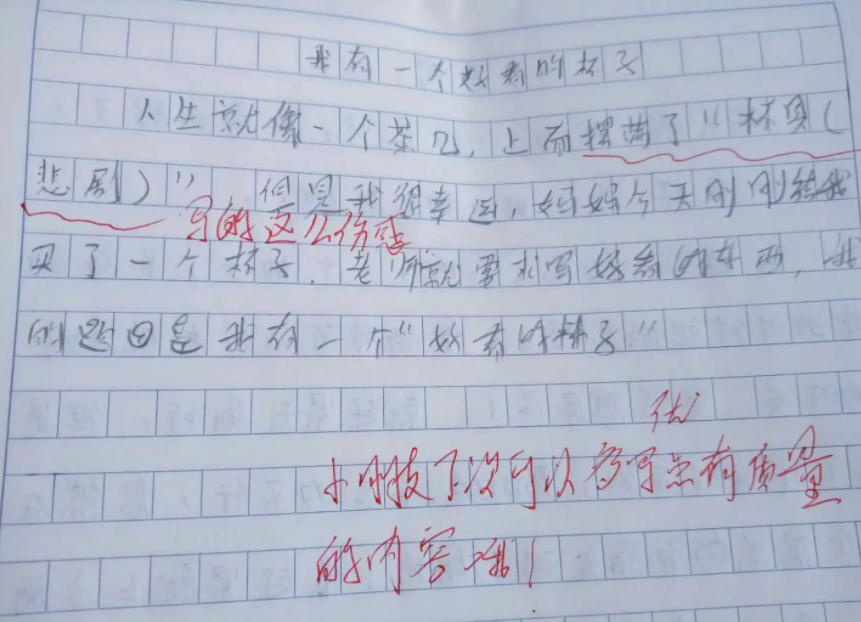 我有一个好看的杯子
人生就像一个茶几，上面摆满了“杯具（
悲剧）”但是我很幸运，妈妈今天刚刚给我
写的这么伤感
买了一个杯子．老师就要求写好看的东西，我
的题目是我有一个“好看的杯子”
优
小明友下次可以多写点有质量
的内容哦！